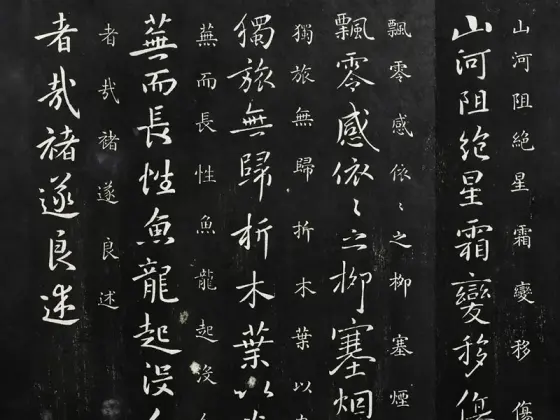 山河阻絕星霜變移傷
山河阻絕星霜變移傷
飄零感依〻之柳塞煙
飄零感依〻之柳塞烟
獨旅無歸折木葉以
獨旅無歸折木葉以
蕪而長性魚龍起沒
蕪而長性魚龍起没
者哉褚遂良述
者哉褚遂良述